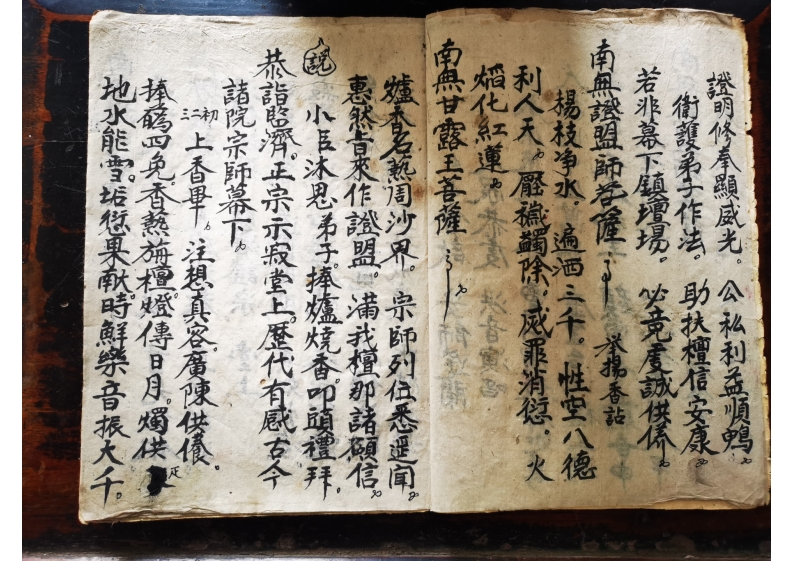 證明修奉顯威光。 公私利益順
衛護弟子作法。 助扶檀信安康
若非幕下鎮壇場。 必竟虔誠供
南無證盟師菩薩
楊枝淨水。遍洒三千。性空八德
利人天 壓穢 除。滅罪消愆。火
焰化紅蓮
南無甘露王菩薩
爐香名爇周沙界。 宗師列位悉遥聞
惠然肯來作證盟。 滿我檀那諸願信
小臣沐恩弟子。捧爐燒香。叩頭禮拜。
説
恭詣 濟。正宗示寂堂上。歷代有感古今
諸院宗師幕下
初 二 三 上香畢 注想真容。廣陳供儀。
捧 四免。香爇旃檀。燈傳日月。燭供
地水能雪。垢愆果献。時鮮樂音振大千。